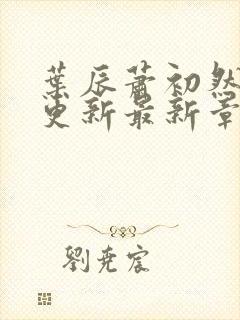 葉辰蕭初然
更新最新章
劉堯宸